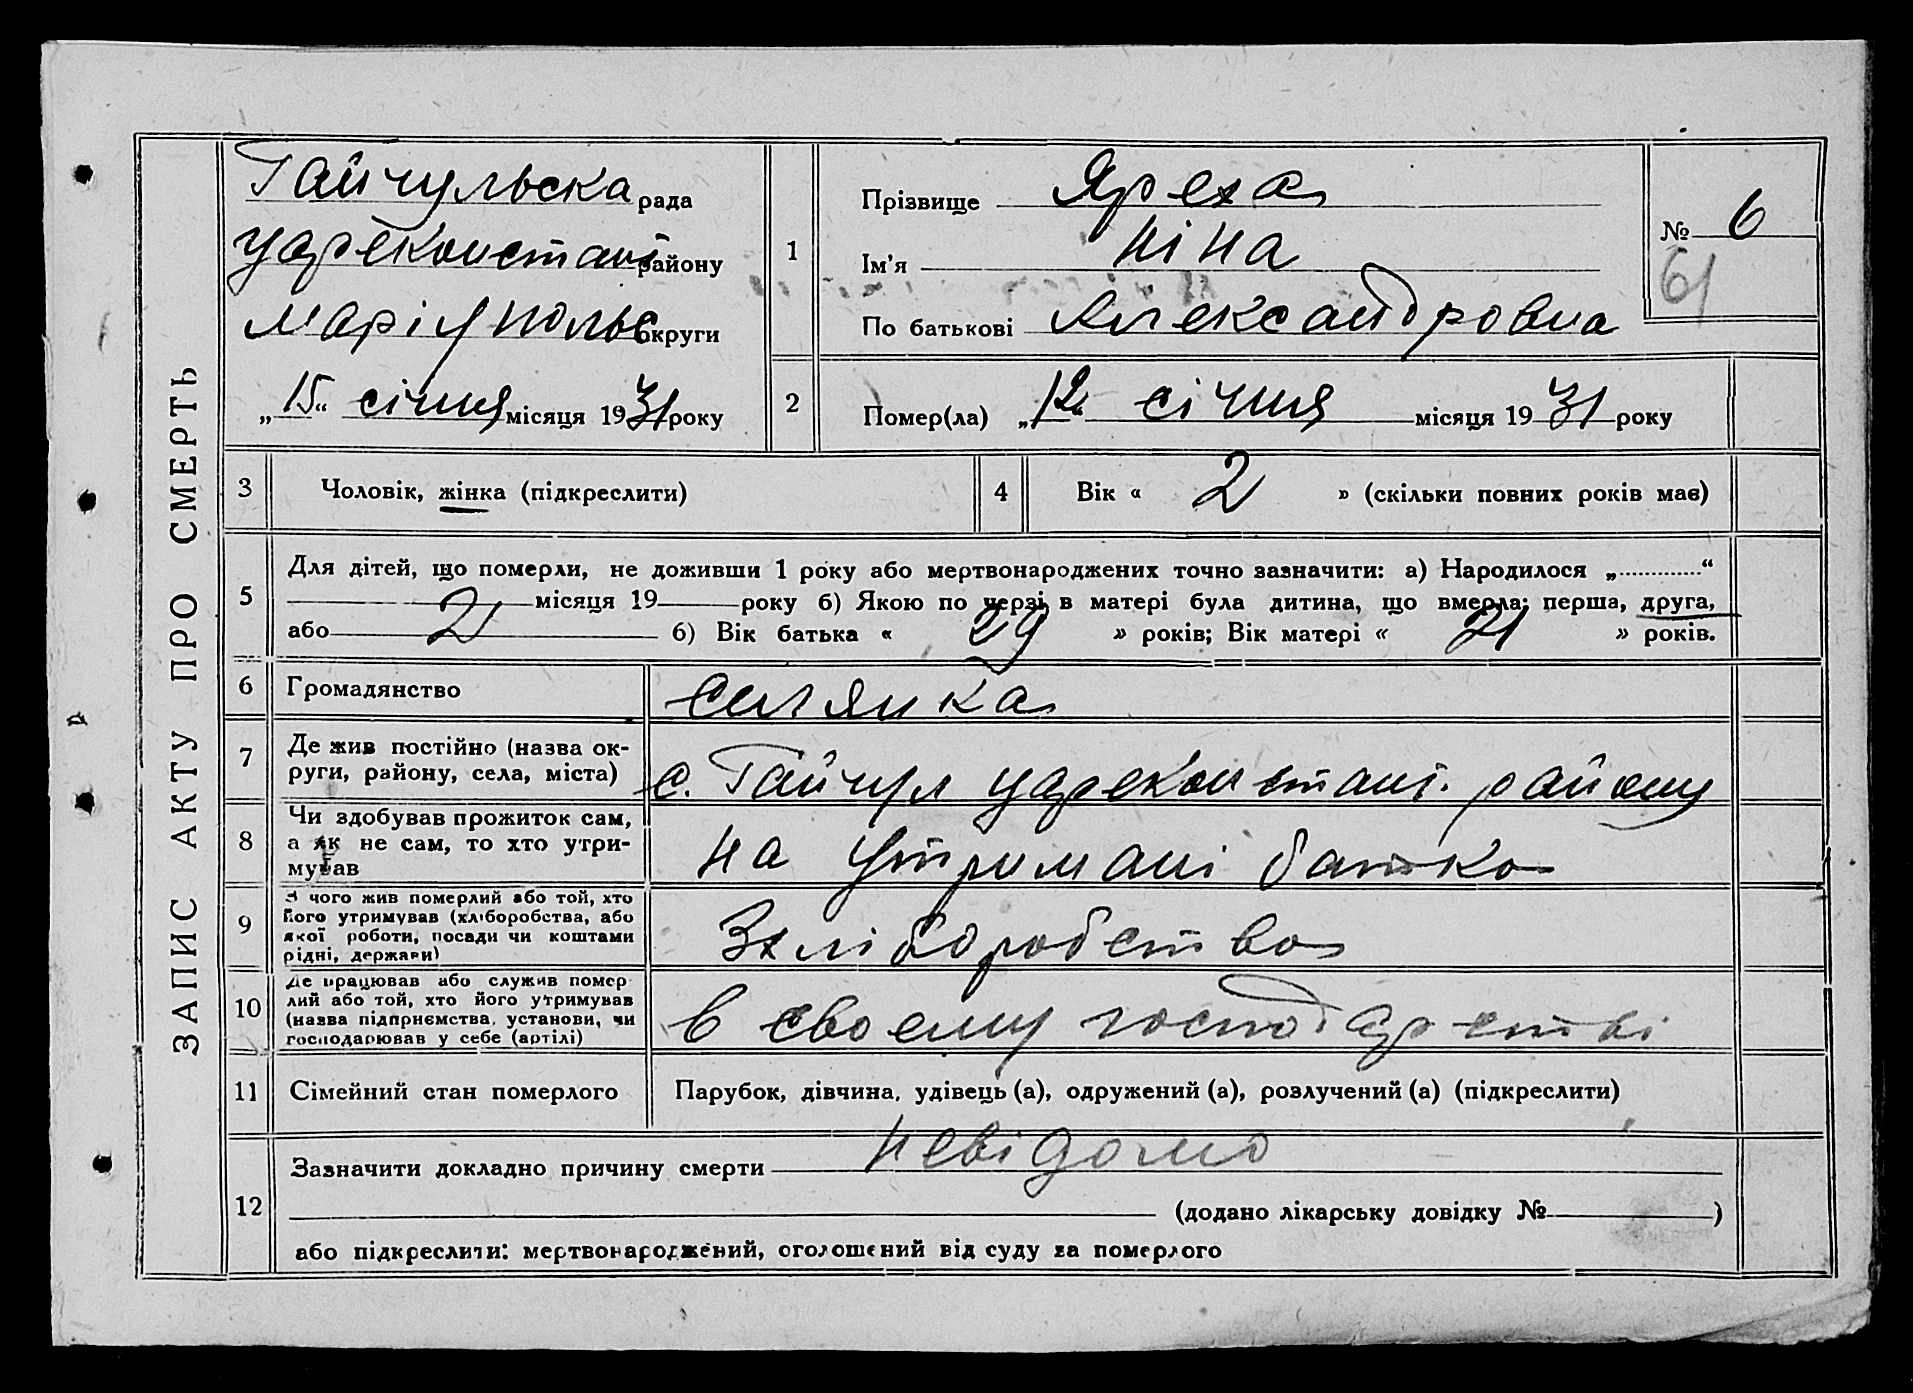 ЗАПИС АКТУ ПРО СМЕРТЬ
Гайчульска рада
царекомстант району
Маріупольс округи
„15“ січня місяця 1931 року
1
Прізвище Яреха
Ім'я Ніна
По батькові Александровна
№ 6
61
2
Помер(ла) „12“ січня місяця 1931 року
3 Чоловік, жінка (підкреслити)
4 Вік « 2 » (скільки повних років має)
5
Для дітей, що померли, не доживши 1 року або мертвонароджених точно зазначити: а) Народилося „............“
місяця 19 року б) Якою по черзі в матері була дитина, що вмерла: перша, друга,
або 2 б) Вік батька « 29 » років; Вік матері « 21 » років.
6 Громадянство селянка
7 Де жив постійно (назва ок-
руги, району, села, міста) с. Гайчул цареконстант. району
8 Чи здобував прожиток сам,
а як не сам, то хто утри-
мував на утримані батька
9 З чого жив померлий або той, хто
його утримував (хліборобства, або
якої роботи, посади чи коштами
рідні, держави) З хліборобства
10 Де працював або служив помер
лий або той, хто його утримував
(назва підприємства, установи, чи
господарював у себе (артілі) в своему господарстві
11 Сімейний стан померлого Парубок, дівчина, удівець (а), одружений (а), розлучений (а) (підкреслити)
12
Зазначити докладно причину смерти невідомо
(додано лікарську довідку № )
або підкреслити: мертвонароджений, оголошений від суду за померлого